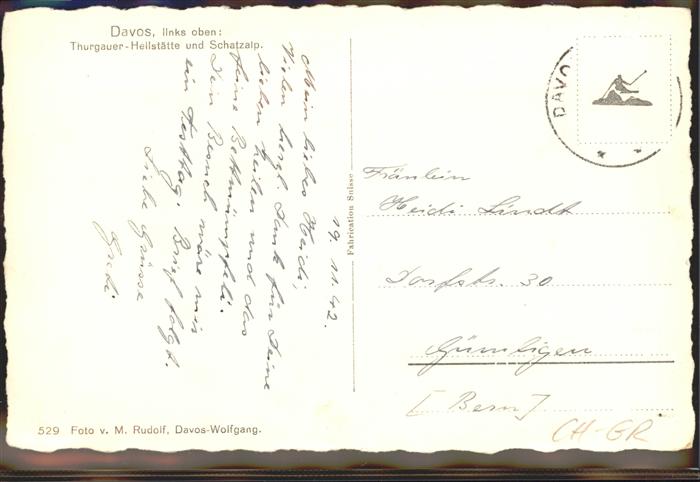 Davos, links oben:
Thurgauer-Heilstätte und Schatzalp.
19. 11. 42.
Mein liebes Heidi,
Vielen herzl. Dank für Deine
lieben Zeilen und das
feine Bettmümpfeli.
Dein Besuch wäre mir
ein Festtag. Brief folgt.
Liebe Grüsse
Fabrication Suisse
DAVO
Fräulein
Heidi Lindt
Dorfstr. 30
Gümligen
[Bern]
CH-GR
529 Foto v. M. Rudolf, Davos-Wolfgang.